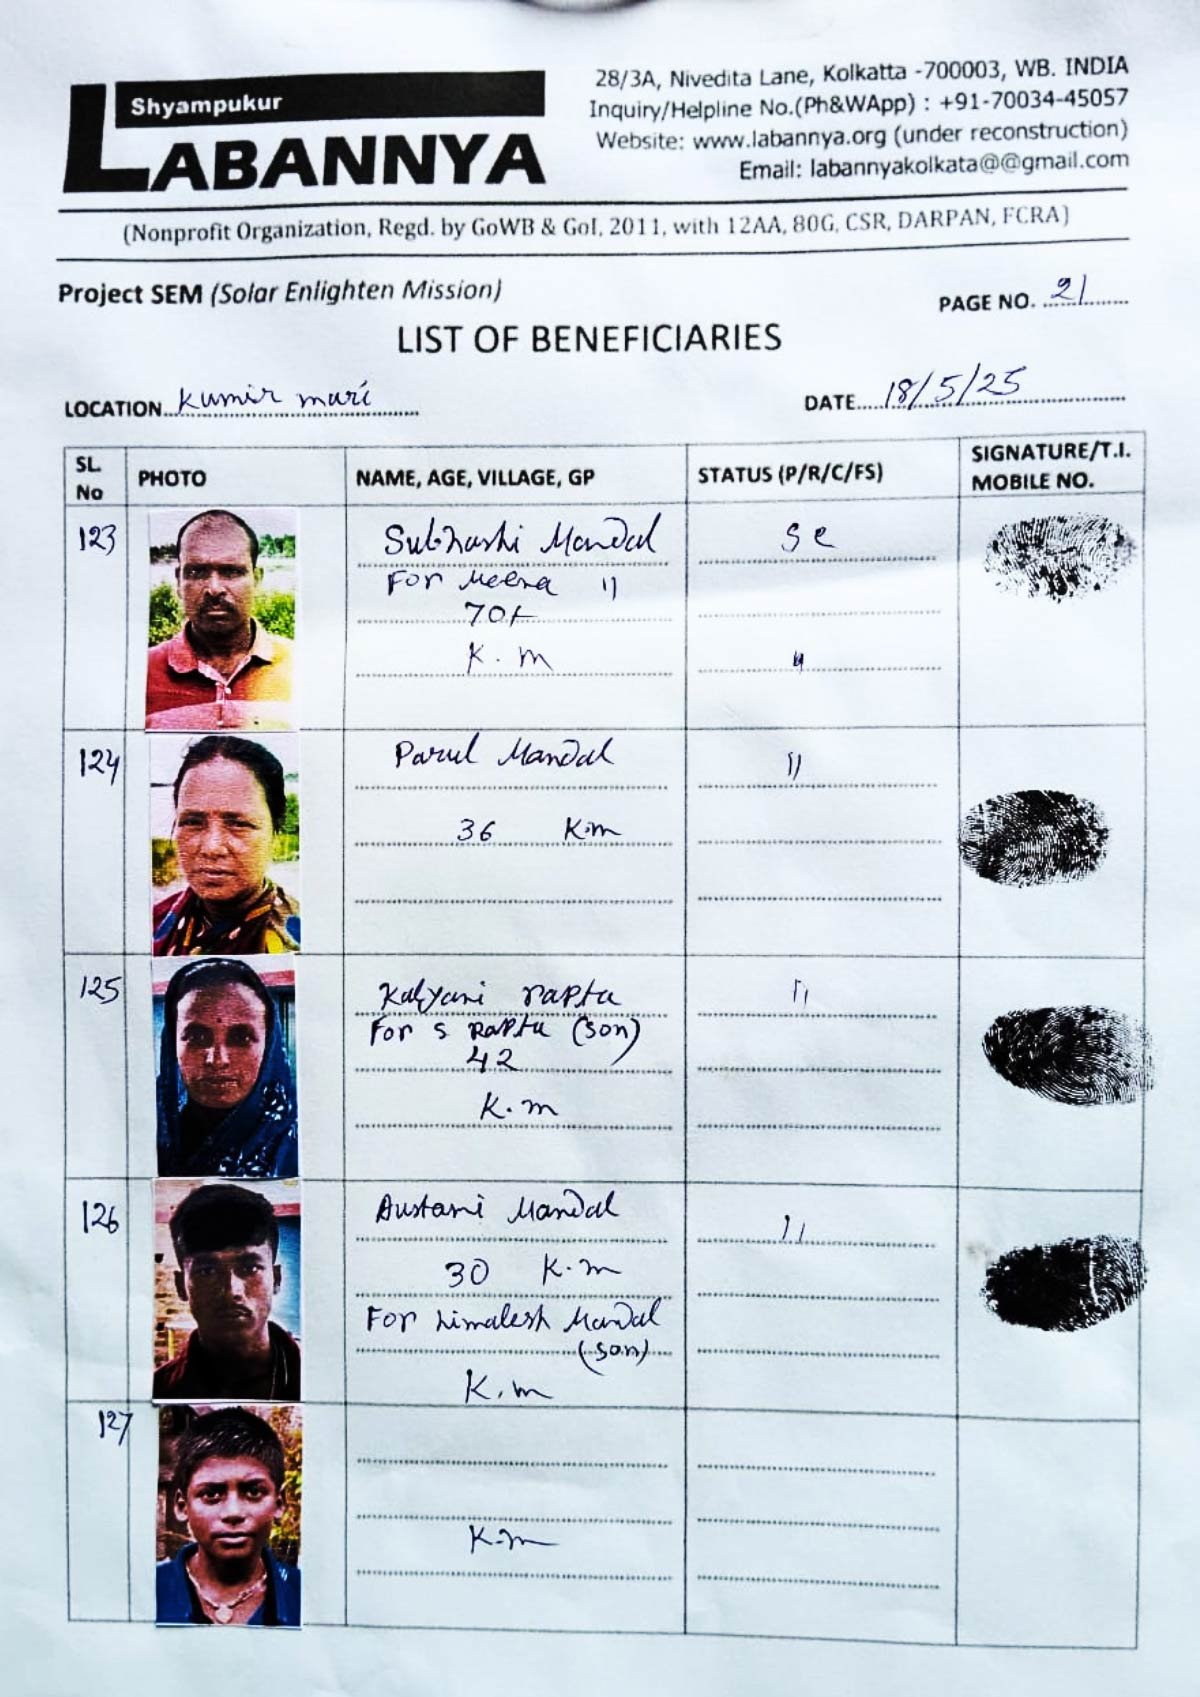 Shyampukur
LABANNYA
28/3A, Nivedita Lane, Kolkatta -700003, WB. INDIA
Inquiry/Helpline No.(Ph&WApp) : +91-70034-45057
Website: www.labannya.org (under reconstruction)
Email: labannyakolkata@@gmail.com
(Nonprofit Organization, Regd. by GoWB & GoI, 2011, with 12AA, 80G, CSR, DARPAN, FCRA)
Project SEM (Solar Enlighten Mission)
PAGE NO. 21
LIST OF BENEFICIARIES
LOCATION Kumir mari
DATE 18/5/25
SL. No PHOTO NAME, AGE, VILLAGE, GP STATUS (P/R/C/FS) SIGNATURE/T.I. MOBILE NO.
123 Subhashi Mandal
For Meena 11
70+
K.m
124 Parul Mandal 11
36 K.m
125 Kalyani rapta 11
For S Rapta (son)
42
K.m
126 Mandal 11
30 K.m
For Mandal
(son)
K.m
127
K.m